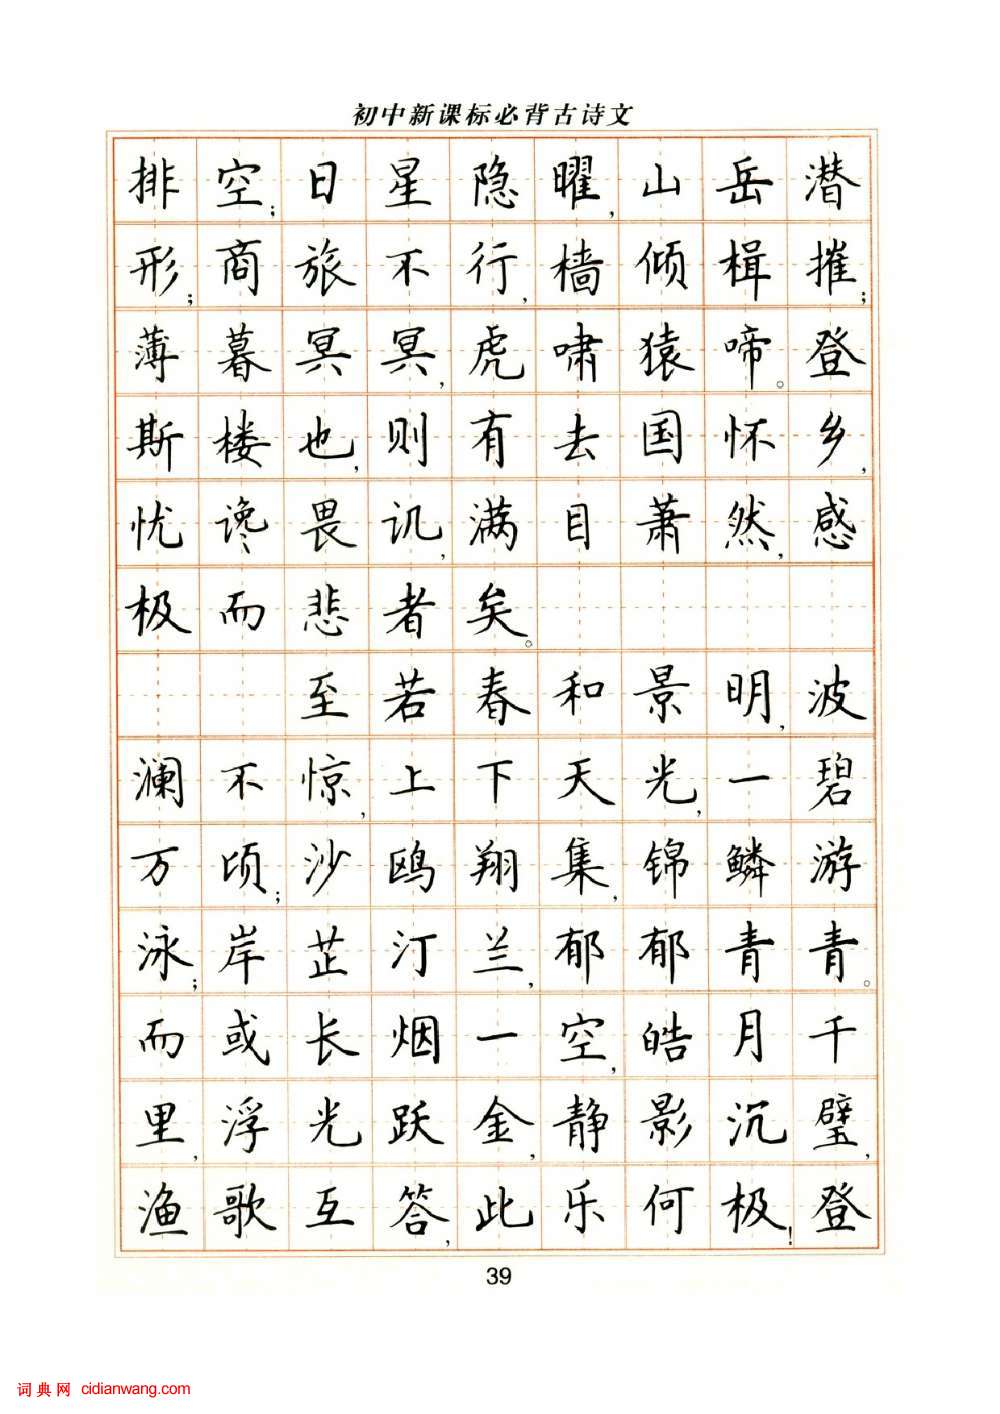 初中新课标必背古诗文
排空；日星隐曜，山岳潜
形；商旅不行，樯倾楫摧；
薄暮冥冥，虎啸猿啼。登
斯楼也，则有去国怀乡，
忧谗畏讥，满目萧然，感
极而悲者矣。
至若春和景明，波
澜不惊，上下天光，一碧
万顷；沙鸥翔集，锦鳞游
泳；岸芷汀兰，郁郁青青。
而或长烟一空，皓月千
里，浮光跃金，静影沉璧，
渔歌互答，此乐何极！登
39
词典网 cidianwang.com